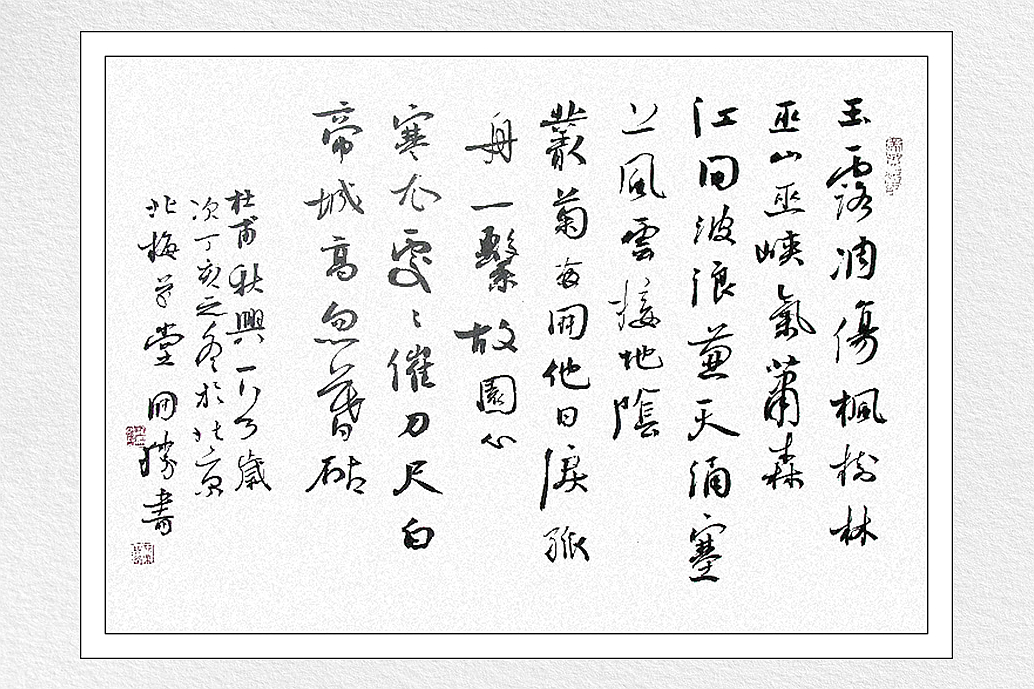 玉露凋傷楓樹林
巫山巫峽氣蕭森
江間波浪兼天涌塞
上風雲接地陰
叢菊兩開他日淚孤
舟一繫故園心
寒衣處々催刀尺白
帝城高急暮砧
杜甫秋興一首歲
次丁亥之冬於北京
北梅草堂書